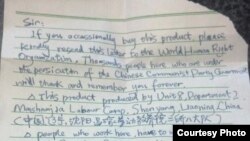 Sir:
If you occassionally buy this product, please
kindly resend this letter to the World Human Right
Organization. Thousands people here who are under
the persicution of the Chinese Communist Party Government
will thank and remember you forever.
This product produced by Unit 8, Department 2,
Mashanjia Labour Camp, Shenyang, Liaoning, China
(中国,辽宁,沈阳,
people who work here, have to
Courtesy Photo